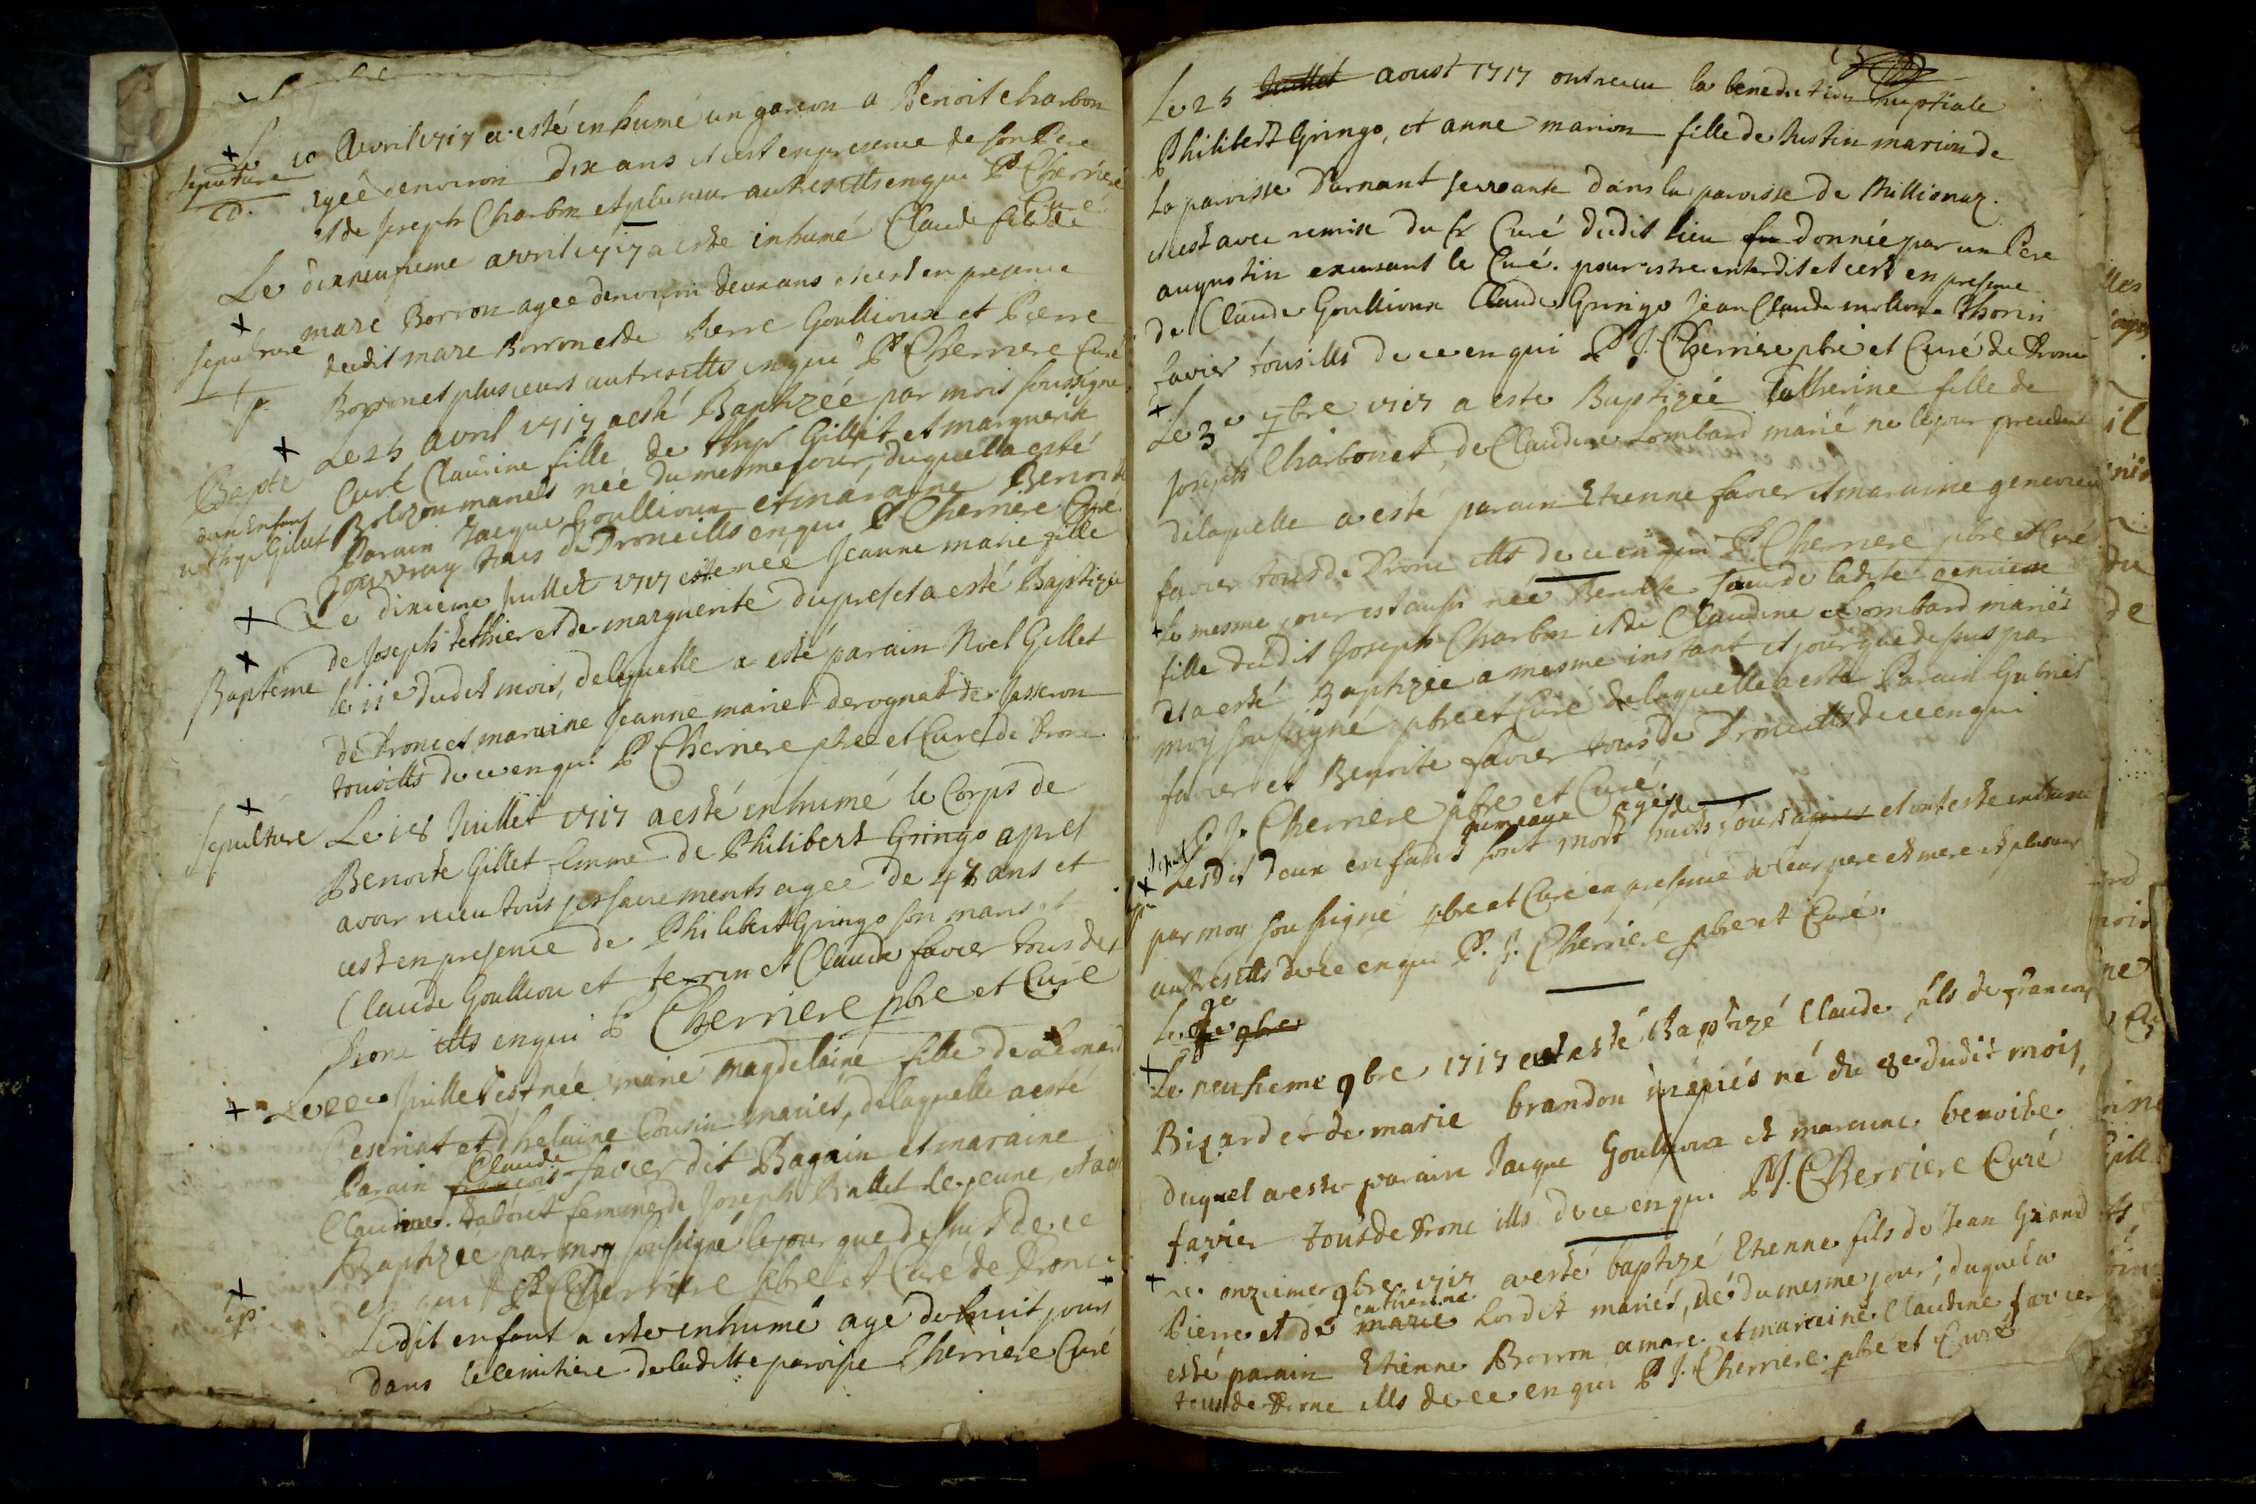 Le 10 Avril 1717 a esté inhumé un garcon a Benoit charbon
sepulture
agée denviron dix ans et cest en presence de son Pere
et de Joseph Charbon et plusieur autres ills en qui P Cherriere
Curé
Le dixneufieme avril 1717 a este inhumé Claude fils de
marc Borron agee denviron deux ans et cest en presence
sepulture
dudit marc Borron et de Pierre Goullioux et Pierre
Borron et plusieurs autres ills en qui P Cherriere Curé
Le 25 avril 1717 a esté Baptizée par mois soussigné
Bapte
Curé Claudine fille de Gillet et marguerite
dun enfant
Bolozon mariés née du mesme jour, duquella esté
Gillet
Parain Jacque Goullioux et maraine Benoite
tous de Dron ills en qui P Cherriere Curé
Le dixieme Juillet 1717 est née Jeanne marie fille
de Joseph et de marguerite a esté Baptizée
Baptême
le 11e dudit mois, de laquelle a esté parain Noel Gillet
de Dron et maraine Jeanne mariet de Jasseron
tous ills de ce en qui P Cherriere pbre et Curé de Dron
Sepulture
Le 18 Juillet 1717 a esté inhumé le Corps de
Benoite Gillet femme de Philibert Gringo apres
avoir receu tous ses sacrements agee de 48 ans et
cest en presence de Philibert Gringo son mari et
Claude Goulliou et et Claude favier tous de
Dron ills en qui P Cherriere pbre et Curé
Le 22e Juillet est née marie magdelaine fille de
et dhelaine Cousin mariés, delaquelle a esté
Claude
Parain françois favier dit Bagain et maraine
Claudine femme de Joseph le jeune, et a esté
Baptizée par moy sousigné le jour que dessus de ce
en qui P Cherriere pbre et Curé de Dron
Ledit enfant a este inhumé agé de huit jours
dans le cemitiere de laditte paroisse Cherriere Curé
Le 25 Juillet aoust 1717 ont receu la benediction nuptiale
Philibert Gringo, et anne marion fille de marion de
la paroisse Darnant servante dans la paroisse de Millionaz.
et cest avec remise du Sr Curé dudit lieu donnée par un Pere
augustin exersant le Curé. pour estre interdit et cest en presence
de Claude Goullioux Claude Gringo Jean Claude Thorin
favier tous ills de ce en qui P J. Cherriere pbre et Curé de Dron
Le 3e 7bre 1717 a este Baptizée Catherine fille de
Joseph Charbonet, de Claudine Lombard marié ne le jour precedent
de laquelle a esté parain Etienne favier et maraine genevieve
favier tous de Dron ills de ce en qui P. Cherriere pbre et Curé
le mesme jour est ausi née Benoite de ladite
fille dudit Joseph Charbon et de Claudine Lombard mariés
et a esté Baptizée a mesme instant et jour que dessus par
moy sousigné pbre et Curé de laquelle a este Parain Gabriel
favier et Benoite favier tous de Dron ills de ce en qui
P J. Cherriere pbre et Curé.
jumeaux agés de
Lesdit deux enfants sont mort huits jours apres et ont este inhumé
par moy sousigné pbre et Curé en presence de leur pere et mere et plusieur
autres ills de ce en qui P. J. Cherriere pbre et Curé.
Le 9e 9bre
Le neufieme 9bre 1717 a esté Baptizé Claude fils de françois
Bizard et de marie brandon mariés né du 8e dudit mois,
duquel a este parain Jacque Goullioux et maraine benoite
favier tous de Dron ills de ce en qui P J. Cherriere Curé
Le onzieme 9bre 1717 a esté baptizé Etienne fils de Jean
catherine
Pierre et de marie Lordet mariés, né du mesme jour, duquel a
esté parain Etienne Borron a marc et maraine Claudine favier
tous de Dron ills de ce en qui P J. Cherriere pbre et Curé